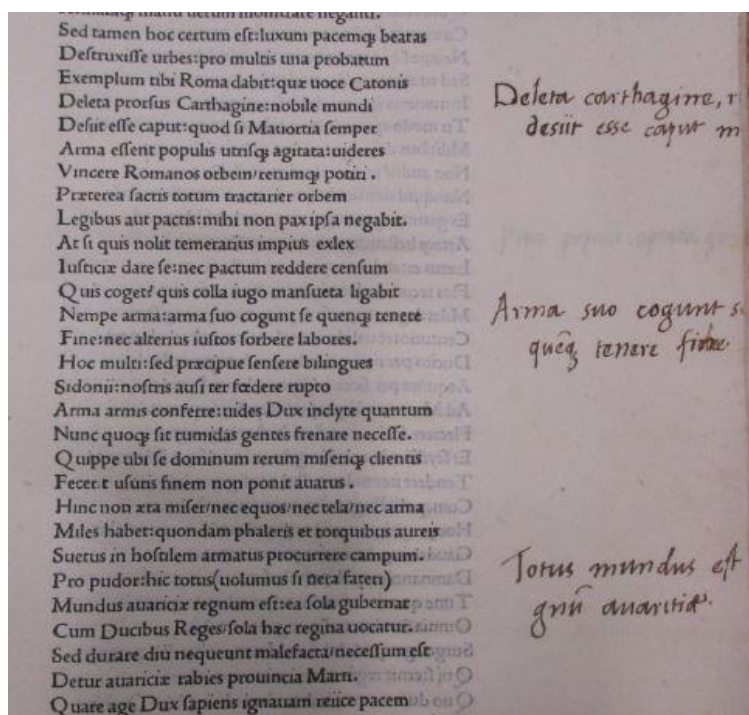 Sed tamen hoc certum eſt:luxum pacemqꝫ beatas
Deſtruxiſſe urbes:pro multis una probatum
Exemplum tibi Roma dabit:quæ uoce Catonis
Deleta prorſus Carthagine:nobile mundi
Deſiit eſſe caput:quod ſi Mauortia ſemper
Arma eſſent populis utriſqꝫ agitata:uideres
Vincere Romanos orbem/rerumqꝫ potiri .
Præterea ſacris totum tractarier orbem
Legibus aut pactis:mihi non pax ipſa negabit.
At ſi quis nolit temerarius impius exlex
Iuſticiæ dare ſe:nec pactum reddere cenſum
Quis coget? quis colla iugo manſueta ligabit
Nempe arma:arma ſuo cogunt ſe quenqꝫ tenere
Fine:nec alterius iuſtos ſorbere labores.
Hoc multi:ſed præcipue ſenſere bilingues
Sidonii:noſtris auſi ter fœdere rupto
Arma armis conferre:uides Dux inclyte quantum
Nunc quoqꝫ ſit tumidas gentes frenare neceſſe.
Quippe ubi ſe dominum rerum miſeriqꝫ clientis
Fecerit uſuris finem non ponit auarus .
Hinc non æra miſer/nec equos/nec tela/nec arma
Miles habet:quondam phaleris et torquibus aureis
Suetus in hoſtilem armatus procurrere campum.
Pro pudor:hic totus(uolumus ſi uera fateri)
Mundus auariciæ regnum eſt:ea ſola gubernat
Cum Ducibus Reges/ſola hæc regina uocatur.
Sed durare diu nequeunt malefacta/neceſſum eſt
Detur auariciæ rabies prouincia Marti.
Quare age Dux ſapiens ignauam reiice pacem
Deleta carthagine,
desiit esse caput m
Arma suo cogunt s
quēqꝫ tenere fine
Totus mundus eſt
gnū auaritiæ.